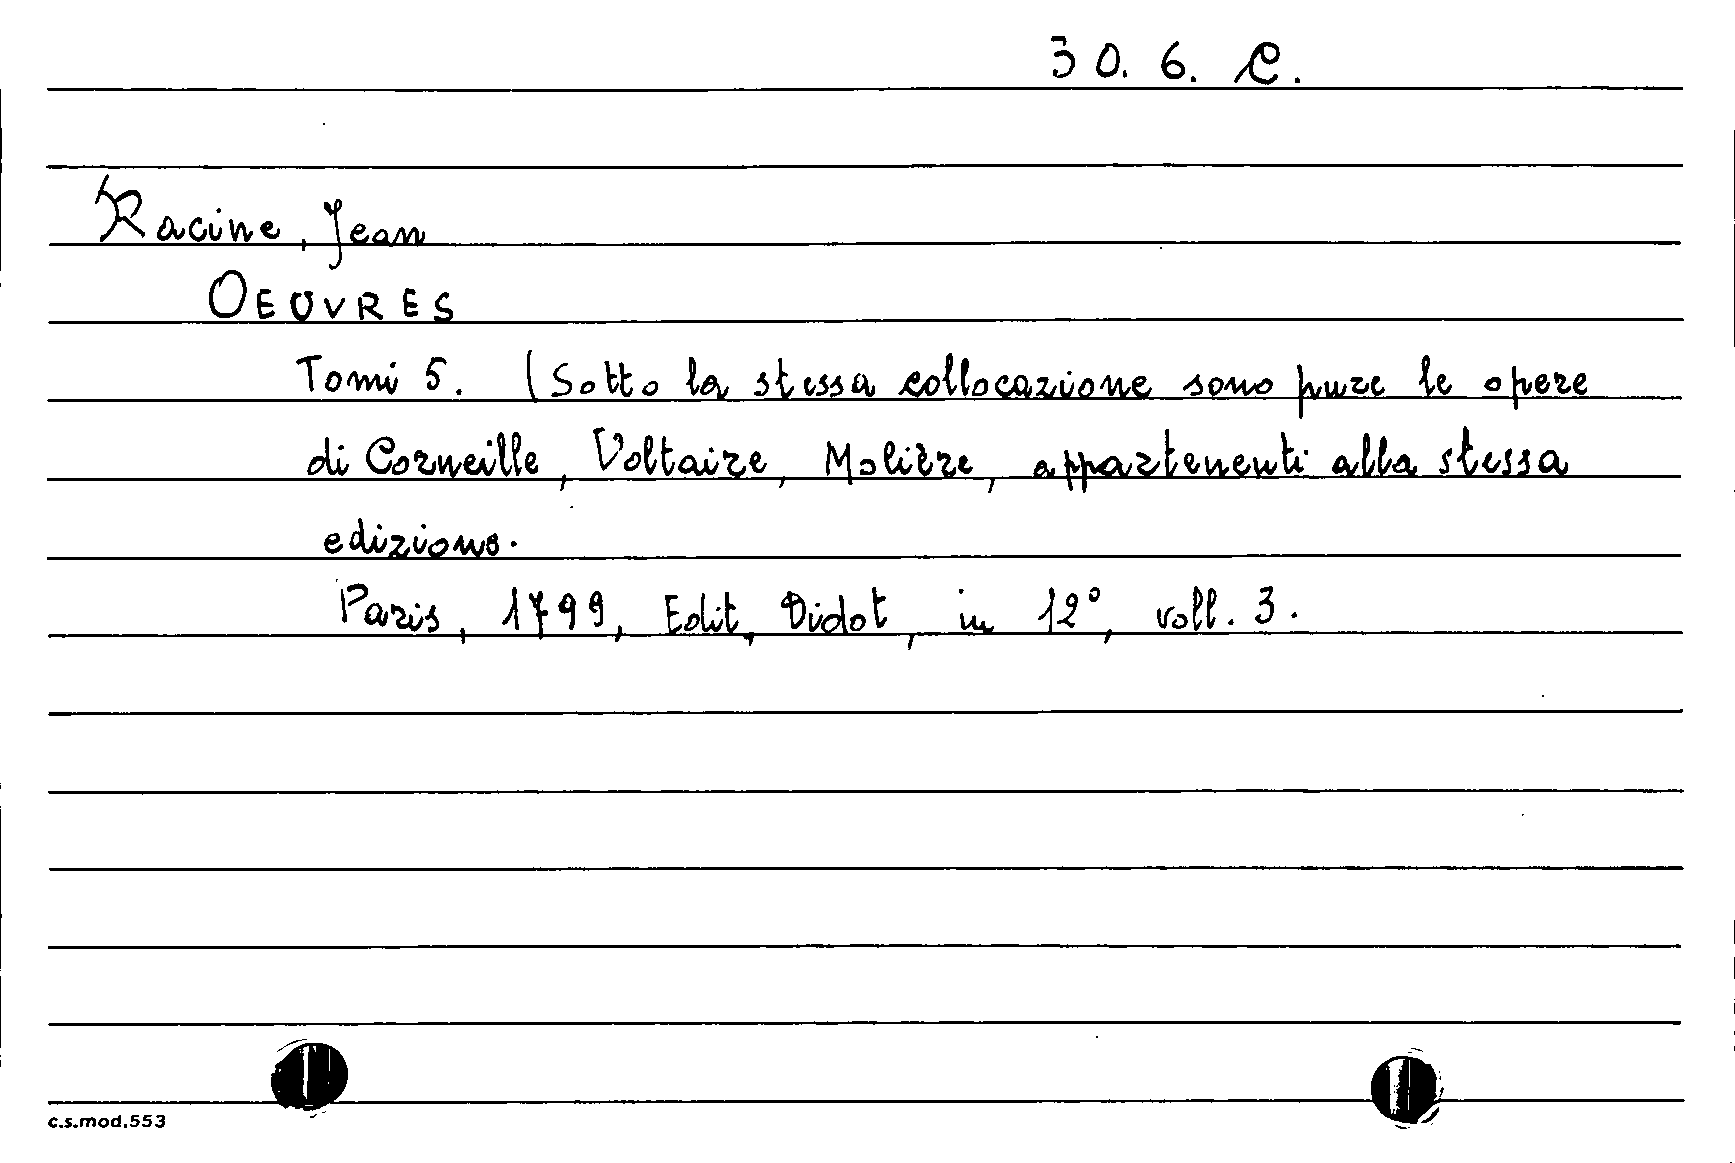 30. 6. C.
Racine, Jean
OEUVRES
Tomi 5. (Sotto la stessa collocazione sono pure le opere
di Corneille, Voltaire, Molière, appartenenti alla stessa
edizione.
Paris, 1799, Edit, Didot, in 12°, voll. 3.
c.s.mod.553